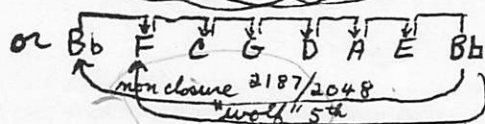 or Bb F C G D A E Bb
nonclosure 2187/2048
"wolf" 5th